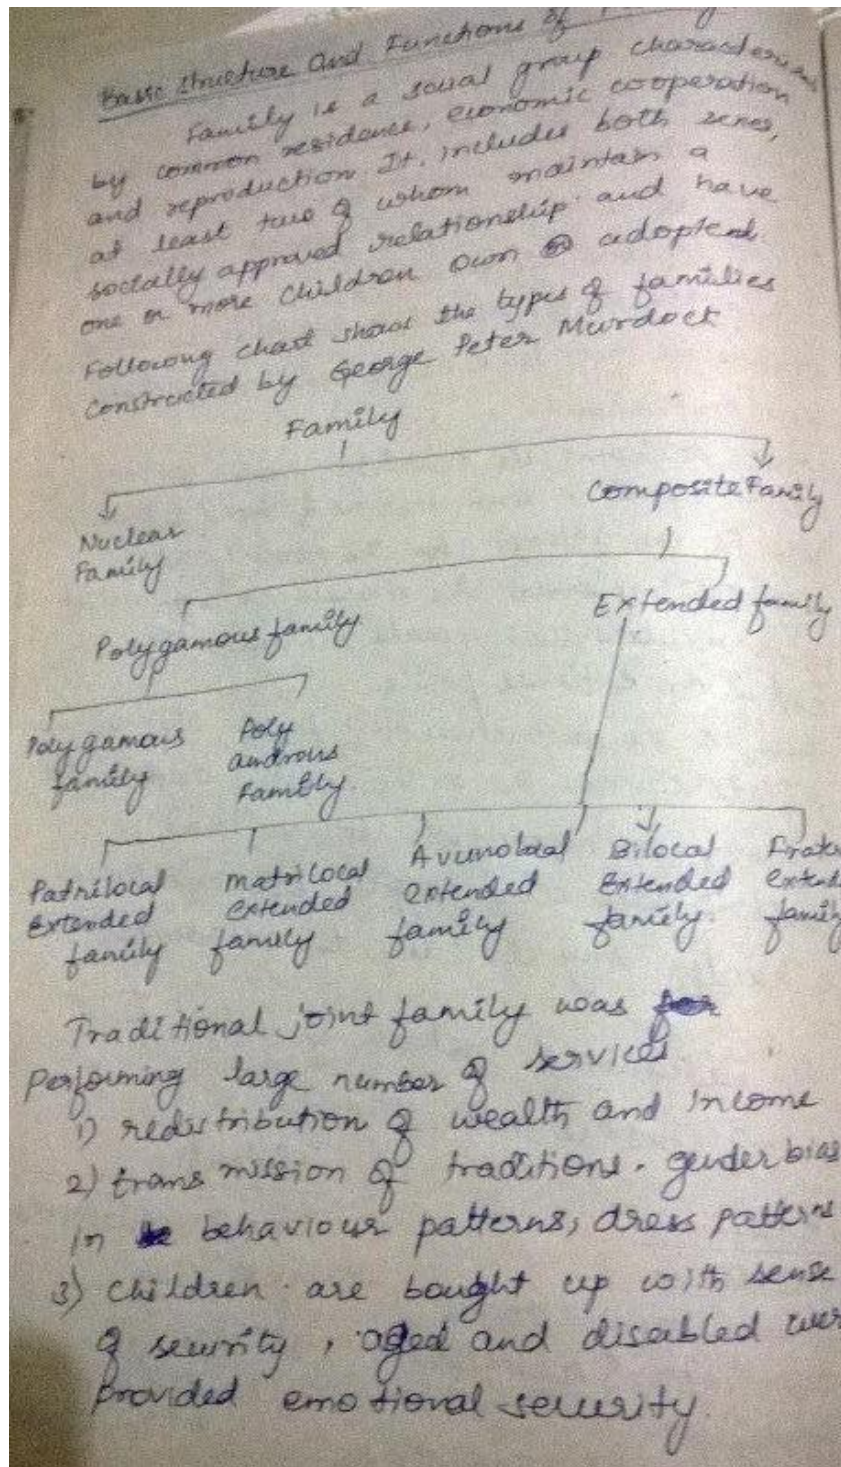 Basic Structure and Functions of
Family is a social group characterised
by common residence, economic cooperation
and reproduction. It includes both sexes,
at least two of whom maintain a
socially approved relationship and have
one or more children own or adopted.
Following chart shows the types of families
constructed by George Peter Murdock
Family
Nuclear Family
Composite Family
Polygamous family
Extended family
Polygamous family
Poly androus Family.
Patrilocal Extended family
matrilocal extended family
Avunolocal extended family
Bilocal Extended family.
family
Traditional joint family was
Performing large number of services
1) redistribution of wealth and income
2) transmission of traditions. gender bias
in behaviour patterns, dress patterns
3) children are bought up with sense
of security, aged and disabled wer
provided emotional security.